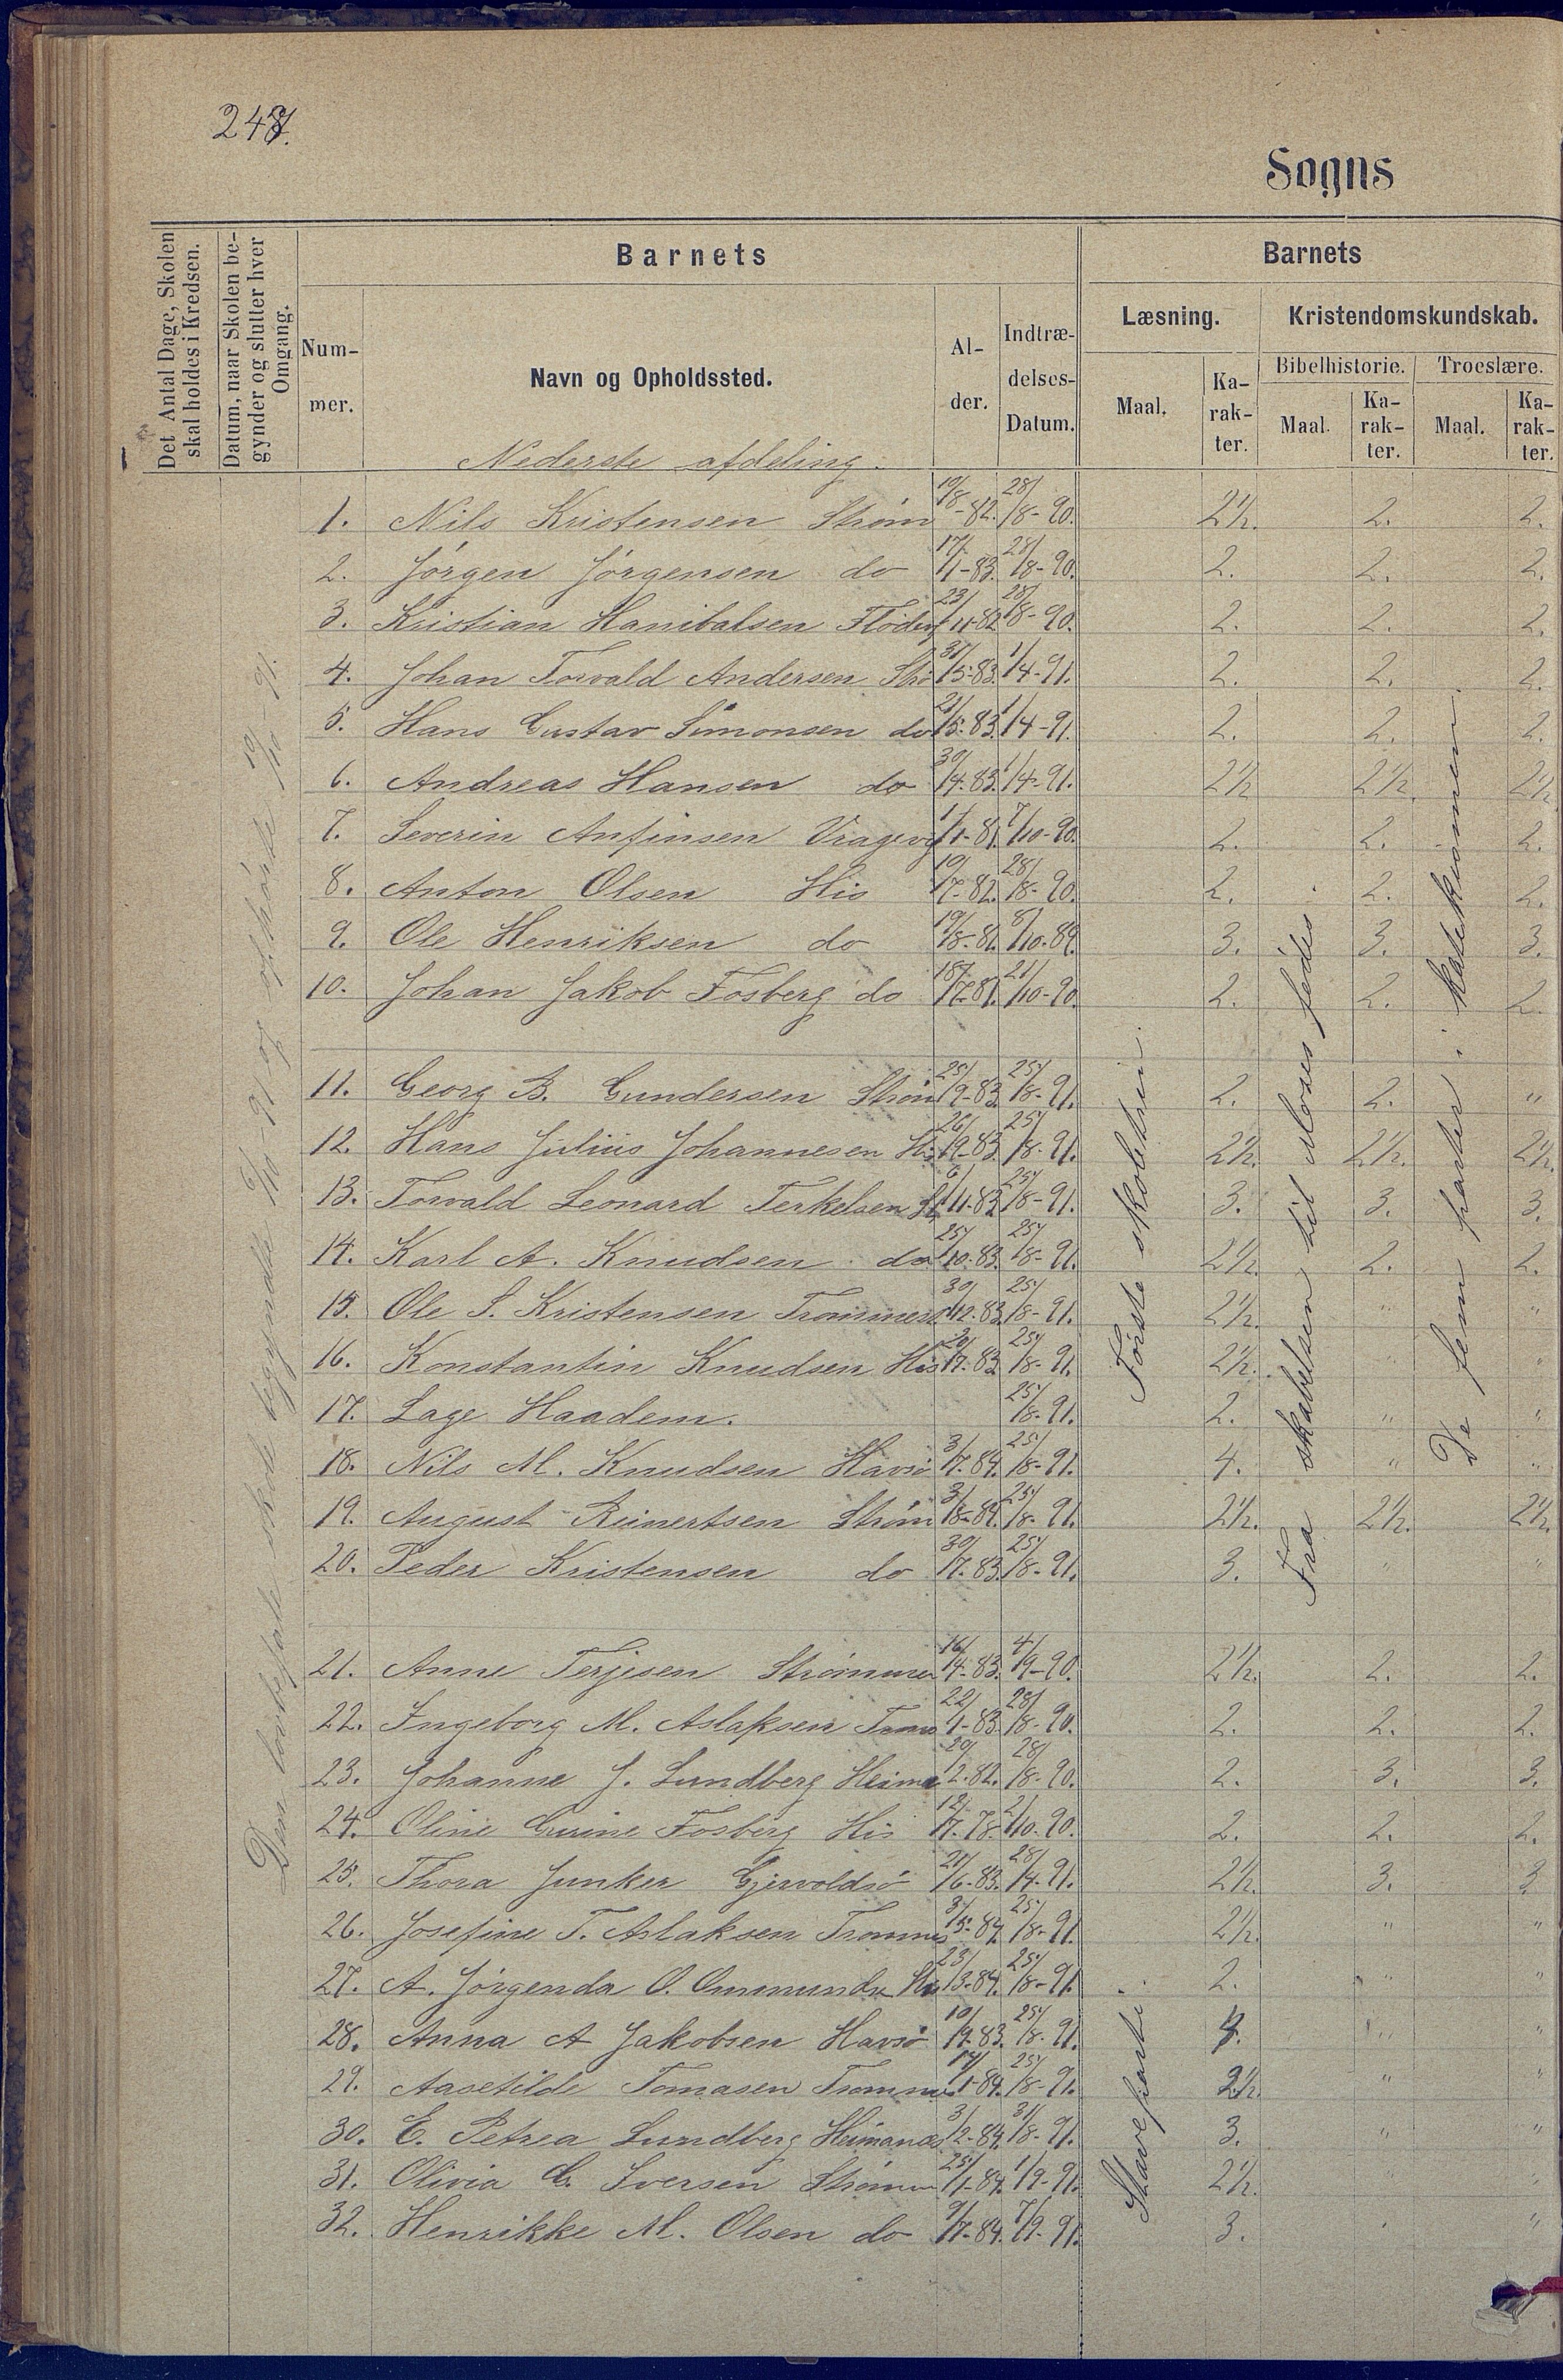 247.
Sogns
Det Antal Dage, Skolen skal holdes i Kredsen.
Datum, naar Skolen begynder og slutter hver Omgang.
Barnets
Barnets
Nummer.
Navn og Opholdssted.
Alder.
Indtrædelses-Datum.
Læsning.
Kristendomskundskab.
Maal.
Karakter.
Bibelhistorie.
Troeslære.
Maal.
Karakter.
Maal.
Karakter.
Nederste afdeling.
1. Nils Kristensen Strøm 19/8-82. 28/8-90. 2½. 2. 2.
2. Jørgen Jørgensen do 17/1-83. 28/8-90. 2. 2. 2.
3. Kristian Hanibalsen 23/11-82 28/8-90. 2. 2. 2.
4. Johan Torvald Andersen Strø 31/5-83. 1/4-91. 2. 2. 2.
5. Hans Gustav Simonsen do 21/5-83. 1/4-91. 2. 2. 2.
6. Andreas Hansen do 30/4-83. 1/4-91. 2½ 2½. 2½
7. Severin Anfinsen 1/1-81. 7/10-90. 2. 2. 2.
8. Anton Olsen His 19/7-82. 28/8-90. 2. 2. 2.
9. Ole Henriksen do 19/8-81. 8/10-89. 3. 3. 3.
10. Johan Jakob Fosberg do 18/7-81. 21/10-90. 2. 2. 2.
11. Georg B. Gundersen Strøm 25/9-83. 25/8-91. 2. 2. "
12. Hans Julius Johannesen His 26/9-83. 25/8-91. 2½. 2½. 2½.
13. Torvald Leonard Terkelsen St 6/11-83. 25/8-91. 3. 3. 3.
14. Karl A. Knudsen do 25/10-83. 25/8-91. 2½. 2. 2.
15. Ole S. Kristensen 30/12-83. 25/8-91. 2½. " "
16. Konstantin Knudsen His 20/7-83. 25/8-91. 2½. " "
17. Lage Haadem. 25/8-91. 2. " "
18. Nils M. Knudsen Havsø 3/7-84. 25/8-91. 4. " "
19. August Reinertsen Strøm 3/8-84. 25/8-91. 2½. 2½. 2½.
20. Peder Kristensen do 30/7-83. 25/8-91. 3. " "
21. Anne Terjesen Strømmen 16/4-83. 4/9-90. 2½. 2. 2.
22. Ingeborg M. Aslaksen Trom 22/1-83. 28/8-90. 2. 2. 2.
23. Johanne J. Lundberg 20/2-82. 28/8-90. 2. 3. 3.
24. Oline Gurine Fosberg His 12/7-78. 2/10-90. 2. 2. 2.
25. Thora Junker Gjervoldsø 21/6-83. 28/4-91. 2½. 3. 3
26. Josefine T. Aslaksen Tromøs 3/5-84. 25/8-91. 2½. " "
27. A. Jørgenda O. Ommunds. His 23/3-84. 25/8-91. 2. " "
28. Anna A Jakobsen Havsø 10/9-83. 25/8-91. 4. " "
29. Aasetilde Tomasen 14/1-84. 25/8-91. 2½ " "
30. E. Petrea Lundberg 3/2-84. 31/8-91. 3. " "
31. Olivia G. Iversen Strømm 25/1-84. 1/9-91. 2½. "
32. Henrikke M. Olsen do 9/7-84. 7/9-91. 3. "
Den lovbefalte skole begyndte 2/10-91 og ophørte 19/10-91.
Første skoletrin.
Staveparti
Fra skabelsen til Moses fødes
De fem parter i katekismen.